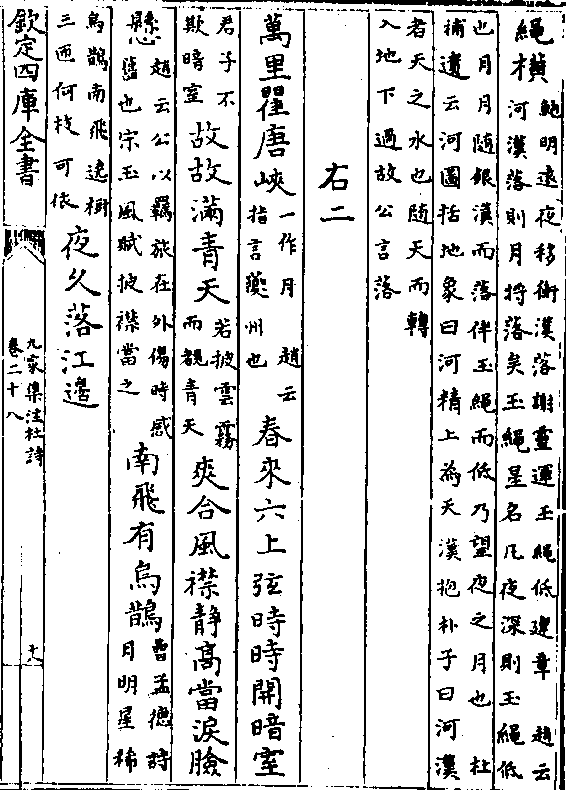 繩橫鮑明遠夜移衡漢落謝靈運玉繩低建章 趙云河漢落則月將落矣玉繩星名凡夜深則玉繩低
也月月隨銀漢而落伴玉繩而低乃望夜之月也 杜補遺云河圖括地象曰河精上為天漢抱朴子曰河漢
者天之水也隨天而轉入地下過故公言落
右二
萬里瞿唐峽一作月 趙云指言夔州也春來六上弦時時開暗室
君子不欺暗室故故滿青天若披雲霧而覩青天爽合風襟靜高當淚臉
懸趙云公以羈旅在外傷時感舊也宋玉風賦披襟當之南飛有烏鵲曹孟德詩月明星稀
烏鵲南飛遶樹三匝何枝可依夜久落江邊
欽定四庫全書
九家集注杜詩
卷二十八
十八